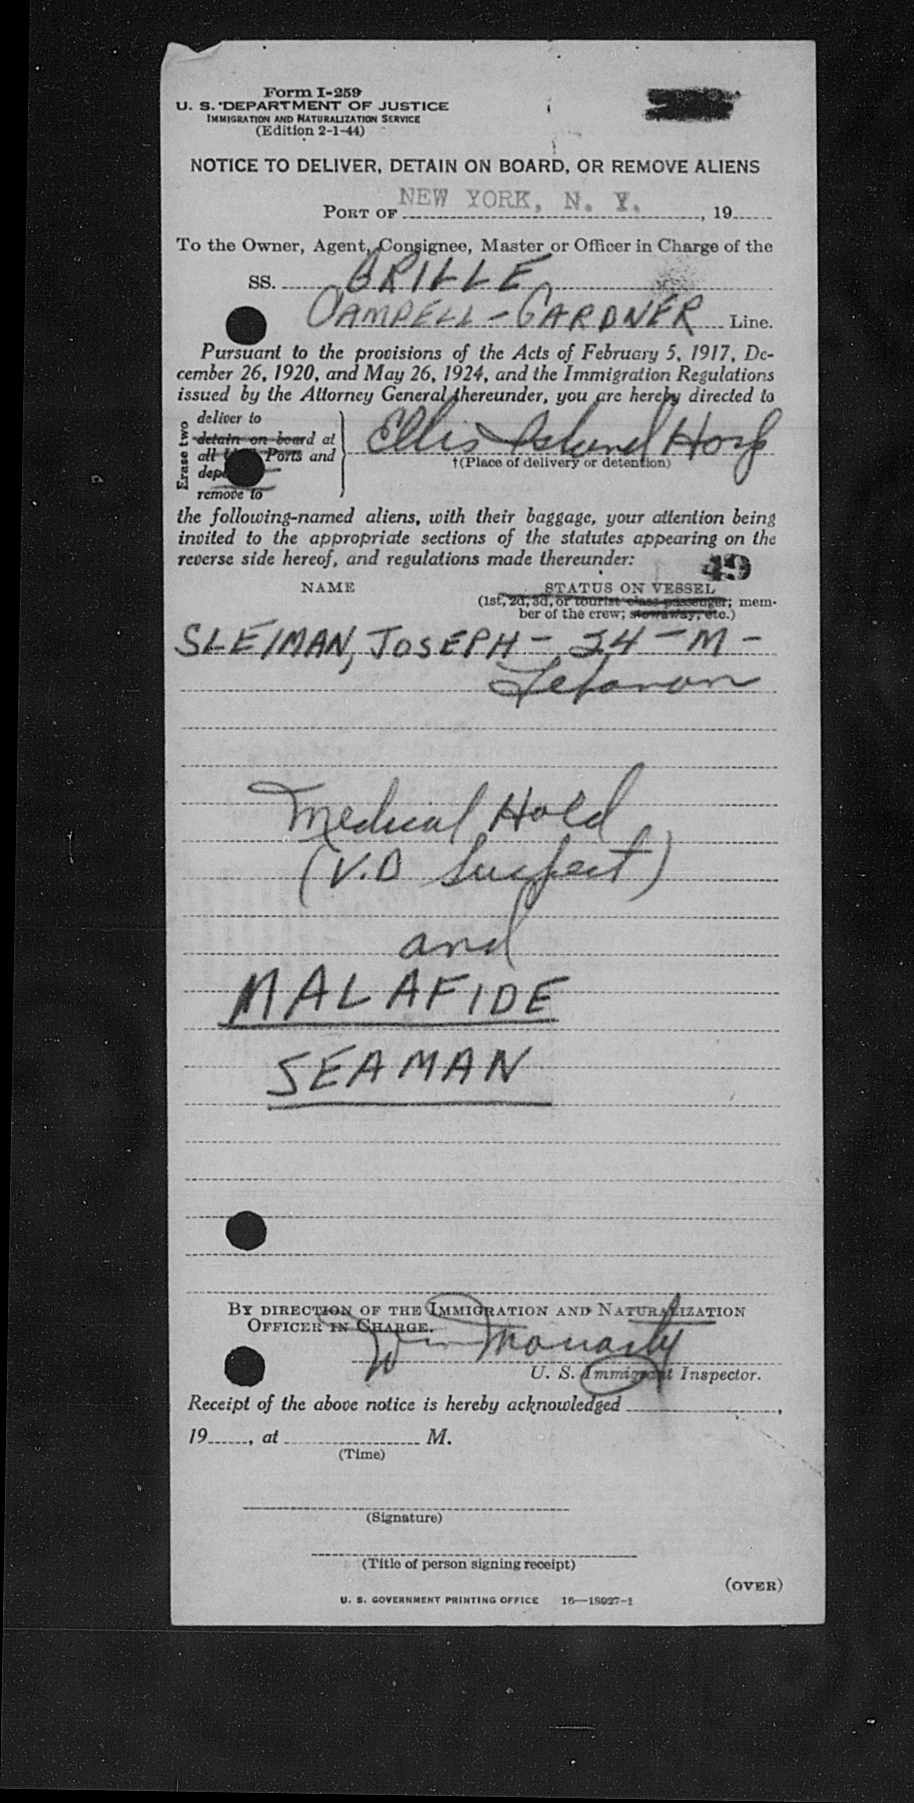 Form I-259
U. S. DEPARTMENT OF JUSTICE
IMMIGRATION AND NATURALIZATION SERVICE
(Edition 2-1-44)
NOTICE TO DELIVER, DETAIN ON BOARD, OR REMOVE ALIENS
PORT OF NEW YORK, N. Y. , 19
To the Owner, Agent, Consignee, Master or Officer in Charge of the
SS. BRILLE
CAMPELL-GARDNER Line.
Pursuant to the provisions of the Acts of February 5, 1917, De-
cember 26, 1920, and May 26, 1924, and the Immigration Regulations
issued by the Attorney General thereunder, you are hereby directed to
Erase two
deliver to
detain on board at
all Ports and
remove to
Ellis Island Hosp
†(Place of delivery or detention)
the following-named aliens, with their baggage, your attention being
invited to the appropriate sections of the statutes appearing on the
reverse side hereof, and regulations made thereunder:
49
NAME STATUS ON VESSEL
(1st, 2d, 3d, or tourist class passenger; mem-
ber of the crew; stowaway, etc.)
SLEIMAN, JOSEPH - 24 - M -
Lebanon
Medical Hold
(V.D Suspect)
and
MALAFIDE
SEAMAN
BY DIRECTION OF THE IMMIGRATION AND NATURALIZATION
OFFICER IN CHARGE.
U. S. Immigrant Inspector.
Receipt of the above notice is hereby acknowledged ,
19 , at M.
(Time)
(Signature)
(Title of person signing receipt)
(OVER)
U. S. GOVERNMENT PRINTING OFFICE 16—18027-1